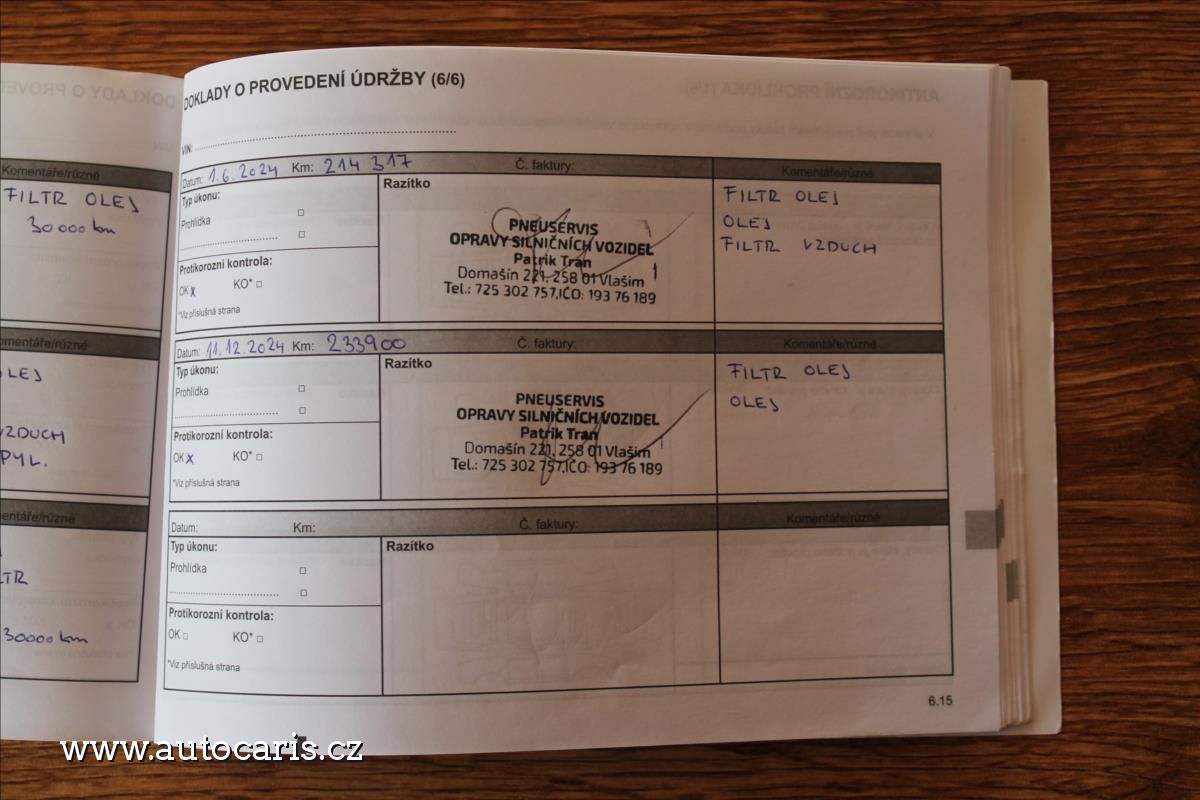 Komentáře/různé
FILTR OLEJ
30 000 km
VZDUCH
PYL.
Komentáře/různé
30000 km
DOKLADY O PROVEDENÍ ÚDRŽBY (6/6)
VIN:
Datum: 1.6.2024 Km: 214 317 Č. faktury: Komentáře/různé
Typ úkonu:
Prohlídka
Protikorozní kontrola:
OK x KO* □
*Viz příslušná strana
Razítko
PNEUSERVIS
OPRAVY SILNIČNÍCH VOZIDEL
Patrik Tran
Domašín 221, 258 01 Vlašim
Tel.: 725 302 757,IČO: 193 76 189
FILTR OLEJ
OLEJ
FILTR VZDUCH
Datum: 11.12.2024 Km: 233900 Č. faktury: Komentáře/různé
Typ úkonu:
Prohlídka
Protikorozní kontrola:
OK x KO* □
*Viz příslušná strana
Razítko
PNEUSERVIS
OPRAVY SILNIČNÍCH VOZIDEL
Patrik Tran
Domašín 221, 258 01 Vlašim
Tel.: 725 302 757,IČO: 193 76 189
FILTR OLEJ
OLEJ
Datum: Km: Č. faktury: Komentáře/různé
Typ úkonu:
Prohlídka
Protikorozní kontrola:
OK □ KO* □
*Viz příslušná strana
Razítko
6.15
www.autocaris.cz